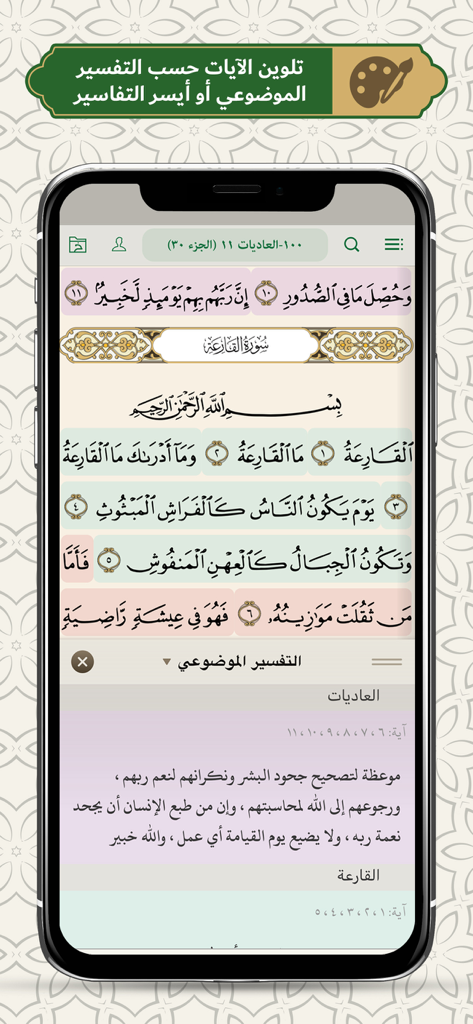 تلوين الآيات حسب التفسير
الموضوعي أو أيسر التفاسير
١٠٠-العاديات ١١ (الجزء ٣٠)
وَحُصِّلَ مَا فِي الصُّدُورِ ١٠ إِنَّ رَبَّهُم بِهِمْ يَوْمَئِذٍ لَّخَبِيرٌ ١١
سُورَةُ القَارِعَةِ
بِسْمِ اللَّهِ الرَّحْمَٰنِ الرَّحِيمِ
الْقَارِعَةُ ١ مَا الْقَارِعَةُ ٢ وَمَا أَدْرَىٰكَ مَا الْقَارِعَةُ
٣ يَوْمَ يَكُونُ النَّاسُ كَالْفَرَاشِ الْمَبْثُوثِ ٤
وَتَكُونُ الْجِبَالُ كَالْعِهْنِ الْمَنفُوشِ ٥ فَأَمَّا
مَن ثَقُلَتْ مَوَٰزِينُهُۥ ٦ فَهُوَ فِي عِيشَةٍ رَّاضِيَةٍ
التفسير الموضوعي
العاديات
آية: ٦، ٧، ٨، ٩، ١٠، ١١
موعظة لتصحيح جحود البشر ونكرانهم لنعم ربهم ،
ورجوعهم إلى الله لمحاسبتهم ، وإن من طبع الإنسان أن يجحد
نعمة ربه ، ولا يضيع يوم القيامة أي عمل ، والله خبير
القارعة
آية: ١، ٢، ٣، ٤، ٥